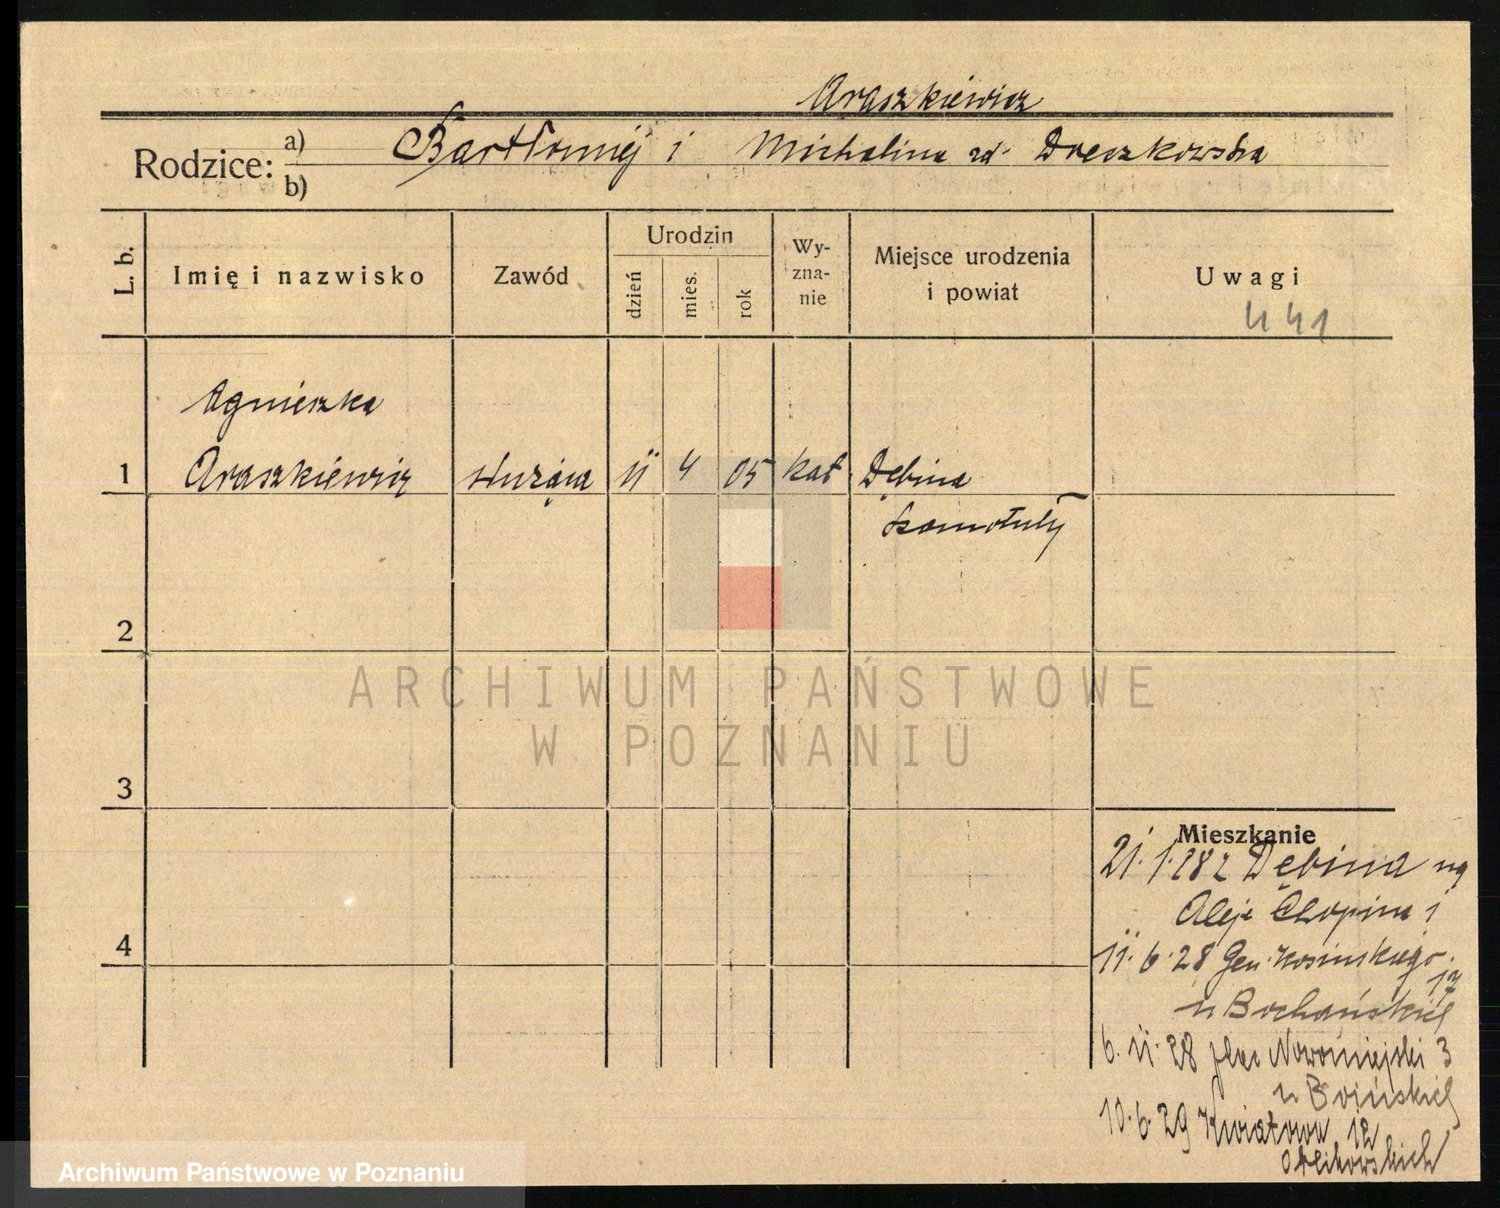 Araszkiewicz
Rodzice: a) Bartłomiej i Michalina zd. Dreczkowska
b)
L. b.
Imię i nazwisko
Zawód
Urodzin
dzień
mies.
rok
Wy-
zna-
nie
Miejsce urodzenia
i powiat
Uwagi
441
Agnieszka
1 Araszkiewicz służąca 11 4 05 kat. Dębina
Szamotuły
2
3
4
ARCHIWUM PAŃSTWOWE
W POZNANIU
Mieszkanie
21.1.28 z Dębina na
Aleje Chopina 1
11.6.28 Gen. Kosinskiego.
17
u Bochańskiej
6.11.28 plac Nowomiejski 3
u Boińskiej
10.6.29 Kwiatowa 12
Archiwum Państwowe w Poznaniu